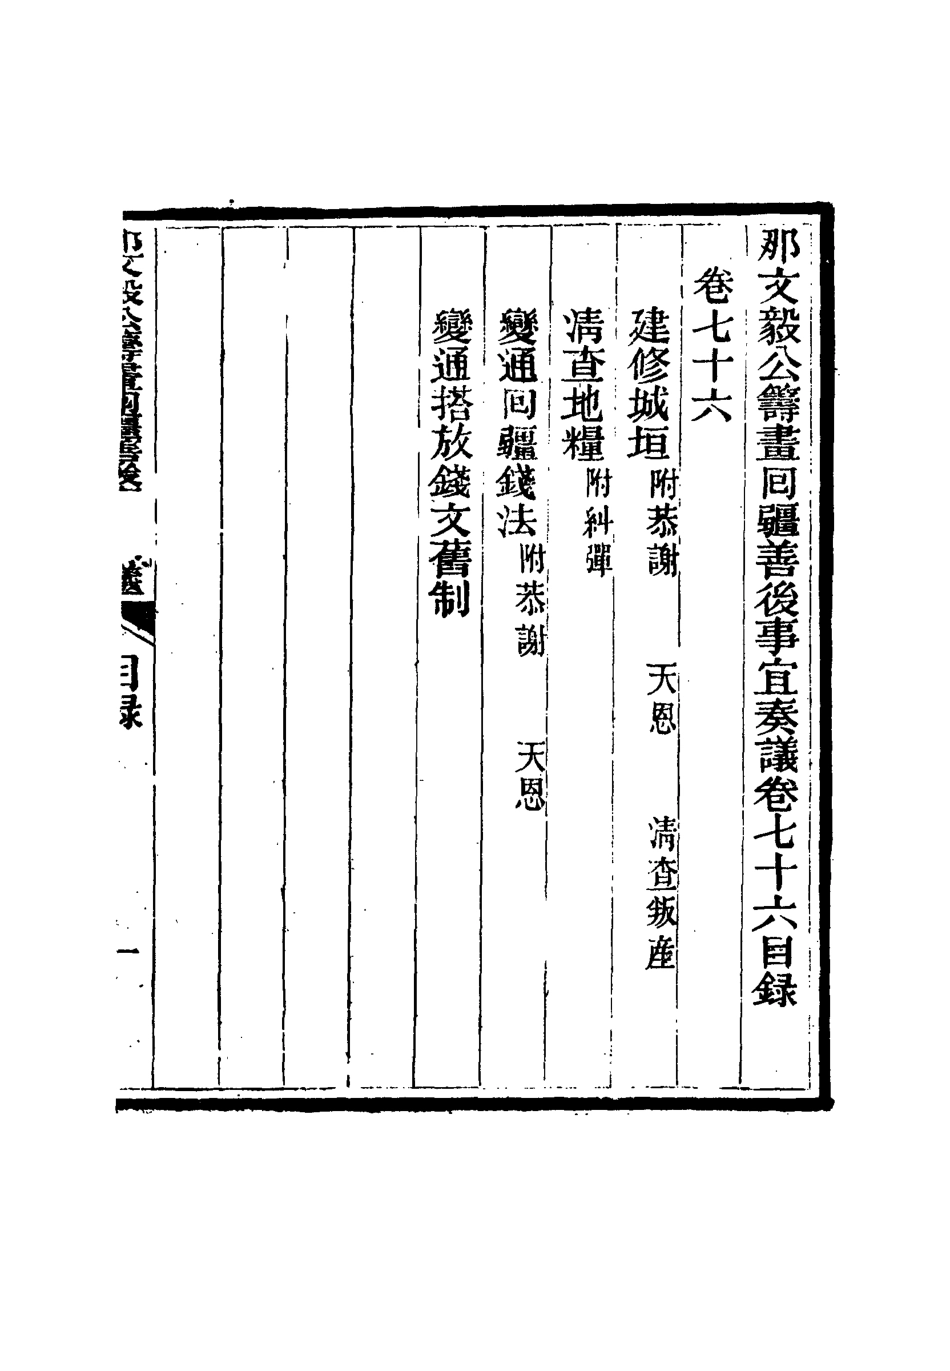 那文毅公籌畫回疆善後事宜奏議卷七十六目録
卷七十六
建修城垣附恭謝 天恩 清查叛産
清查地糧附糾彈
變通回疆錢法附恭謝 天恩
變通搭放錢文舊制
那文毅公籌畫回疆善後 目録 一